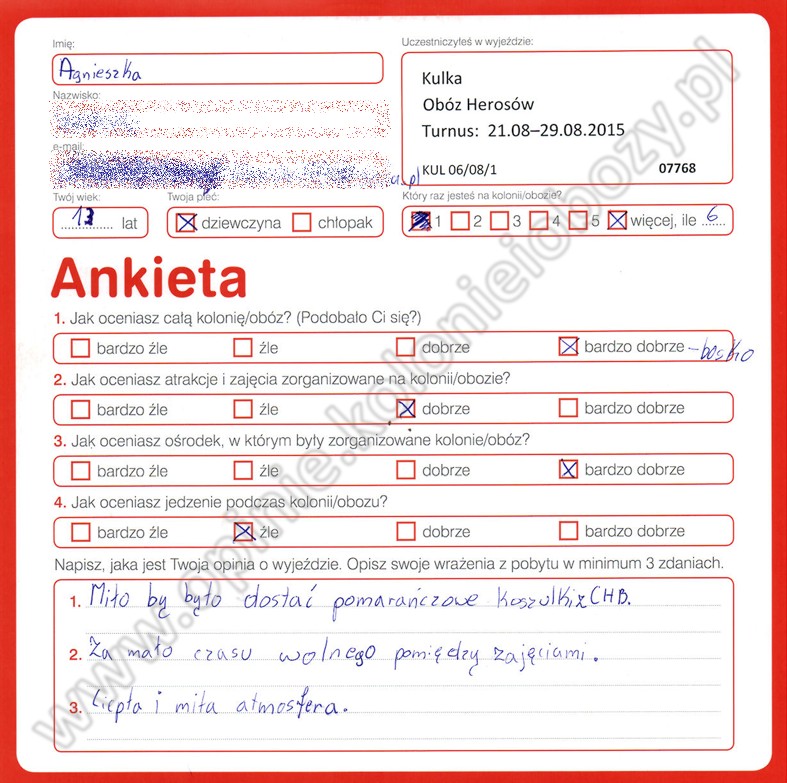 Imię:
Agnieszka
Nazwisko:
e-mail:
a.pl
Twój wiek:
13 lat
Twoja płeć:
dziewczyna chłopak
Uczestniczyłeś w wyjeździe:
Kulka
Obóz Herosów
Turnus: 21.08–29.08.2015
KUL 06/08/1 07768
Który raz jesteś na kolonii/obozie?
1 2 3 4 5 więcej, ile 6
Ankieta
1. Jak oceniasz całą kolonię/obóz? (Podobało Ci się?)
bardzo źle źle dobrze bardzo dobrze - bosko
2. Jak oceniasz atrakcje i zajęcia zorganizowane na kolonii/obozie?
bardzo źle źle dobrze bardzo dobrze
3. Jak oceniasz ośrodek, w którym były zorganizowane kolonie/obóz?
bardzo źle źle dobrze bardzo dobrze
4. Jak oceniasz jedzenie podczas kolonii/obozu?
bardzo źle źle dobrze bardzo dobrze
Napisz, jaka jest Twoja opinia o wyjeździe. Opisz swoje wrażenia z pobytu w minimum 3 zdaniach.
1. Miło by było dostać pomarańczowe koszulki z CHB.
2. Za mało czasu wolnego pomiędzy zajęciami.
3. Ciepła i miła atmosfera.
www.opinie.kolonieiobozy.pl